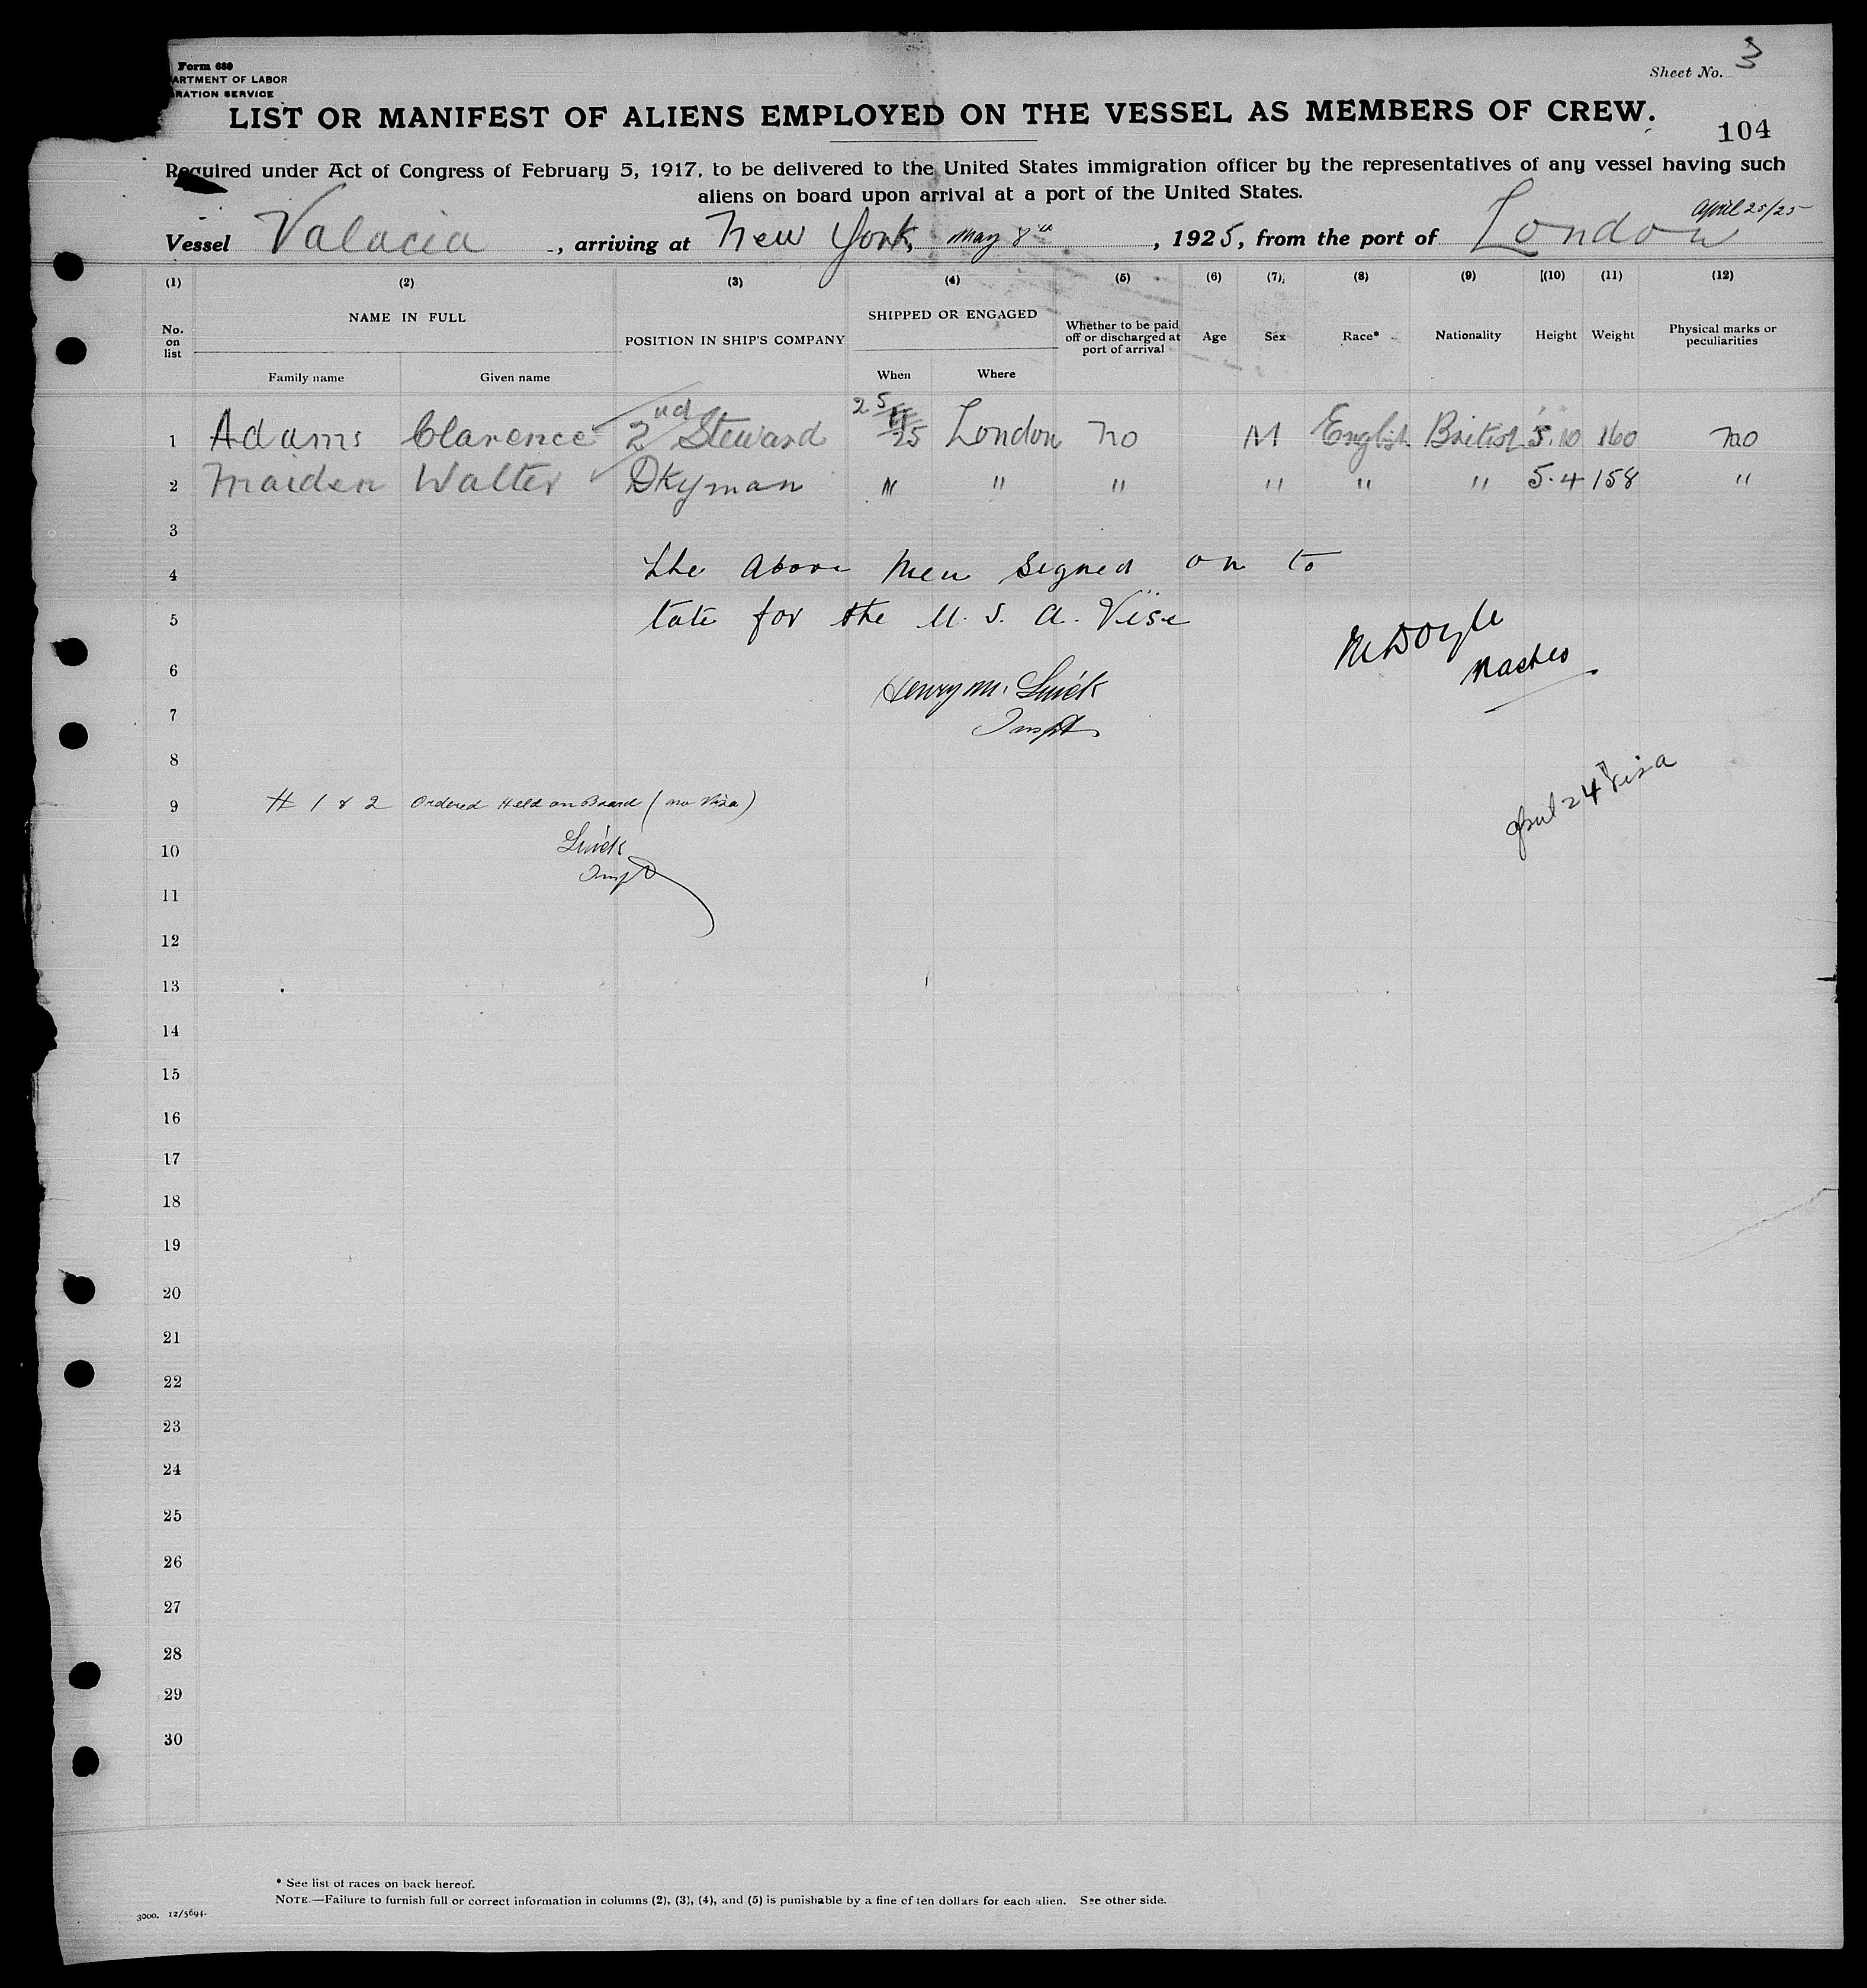 Form 680
ARTMENT OF LABOR
RATION SERVICE
Sheet No. 3
LIST OR MANIFEST OF ALIENS EMPLOYED ON THE VESSEL AS MEMBERS OF CREW.
104
Required under Act of Congress of February 5, 1917, to be delivered to the United States immigration officer by the representatives of any vessel having such
aliens on board upon arrival at a port of the United States.
April 25/25
Vessel Valacia, arriving at New York, May 8th, 1925, from the port of London
(1) (2) (3) (4) (5) (6) (7) (8) (9) (10) (11) (12)
No. on list NAME IN FULL POSITION IN SHIP'S COMPANY SHIPPED OR ENGAGED Whether to be paid off or discharged at port of arrival Age Sex Race* Nationality Height Weight Physical marks or peculiarities
Family name Given name When Where
1 Adams Clarence 2nd Steward 25 25 London No M English British 5.10 160 no
2 Maiden Walter Dkyman " " " " " " 5.4 158 "
3
4 the above men signed on to
5 late for the U. S. A. Vise
M Doyle
Master
6 Henry M.
7 Inspt
8
April 24 Visa
9 # 1 & 2 Ordered Held on Board (no visa)
10
Inspt
11
12
13
14
15
16
17
18
19
20
21
22
23
24
25
26
27
28
29
30
* See list of races on back hereof.
NOTE.—Failure to furnish full or correct information in columns (2), (3), (4), and (5) is punishable by a fine of ten dollars for each alien. See other side.
3000. 12/5694.